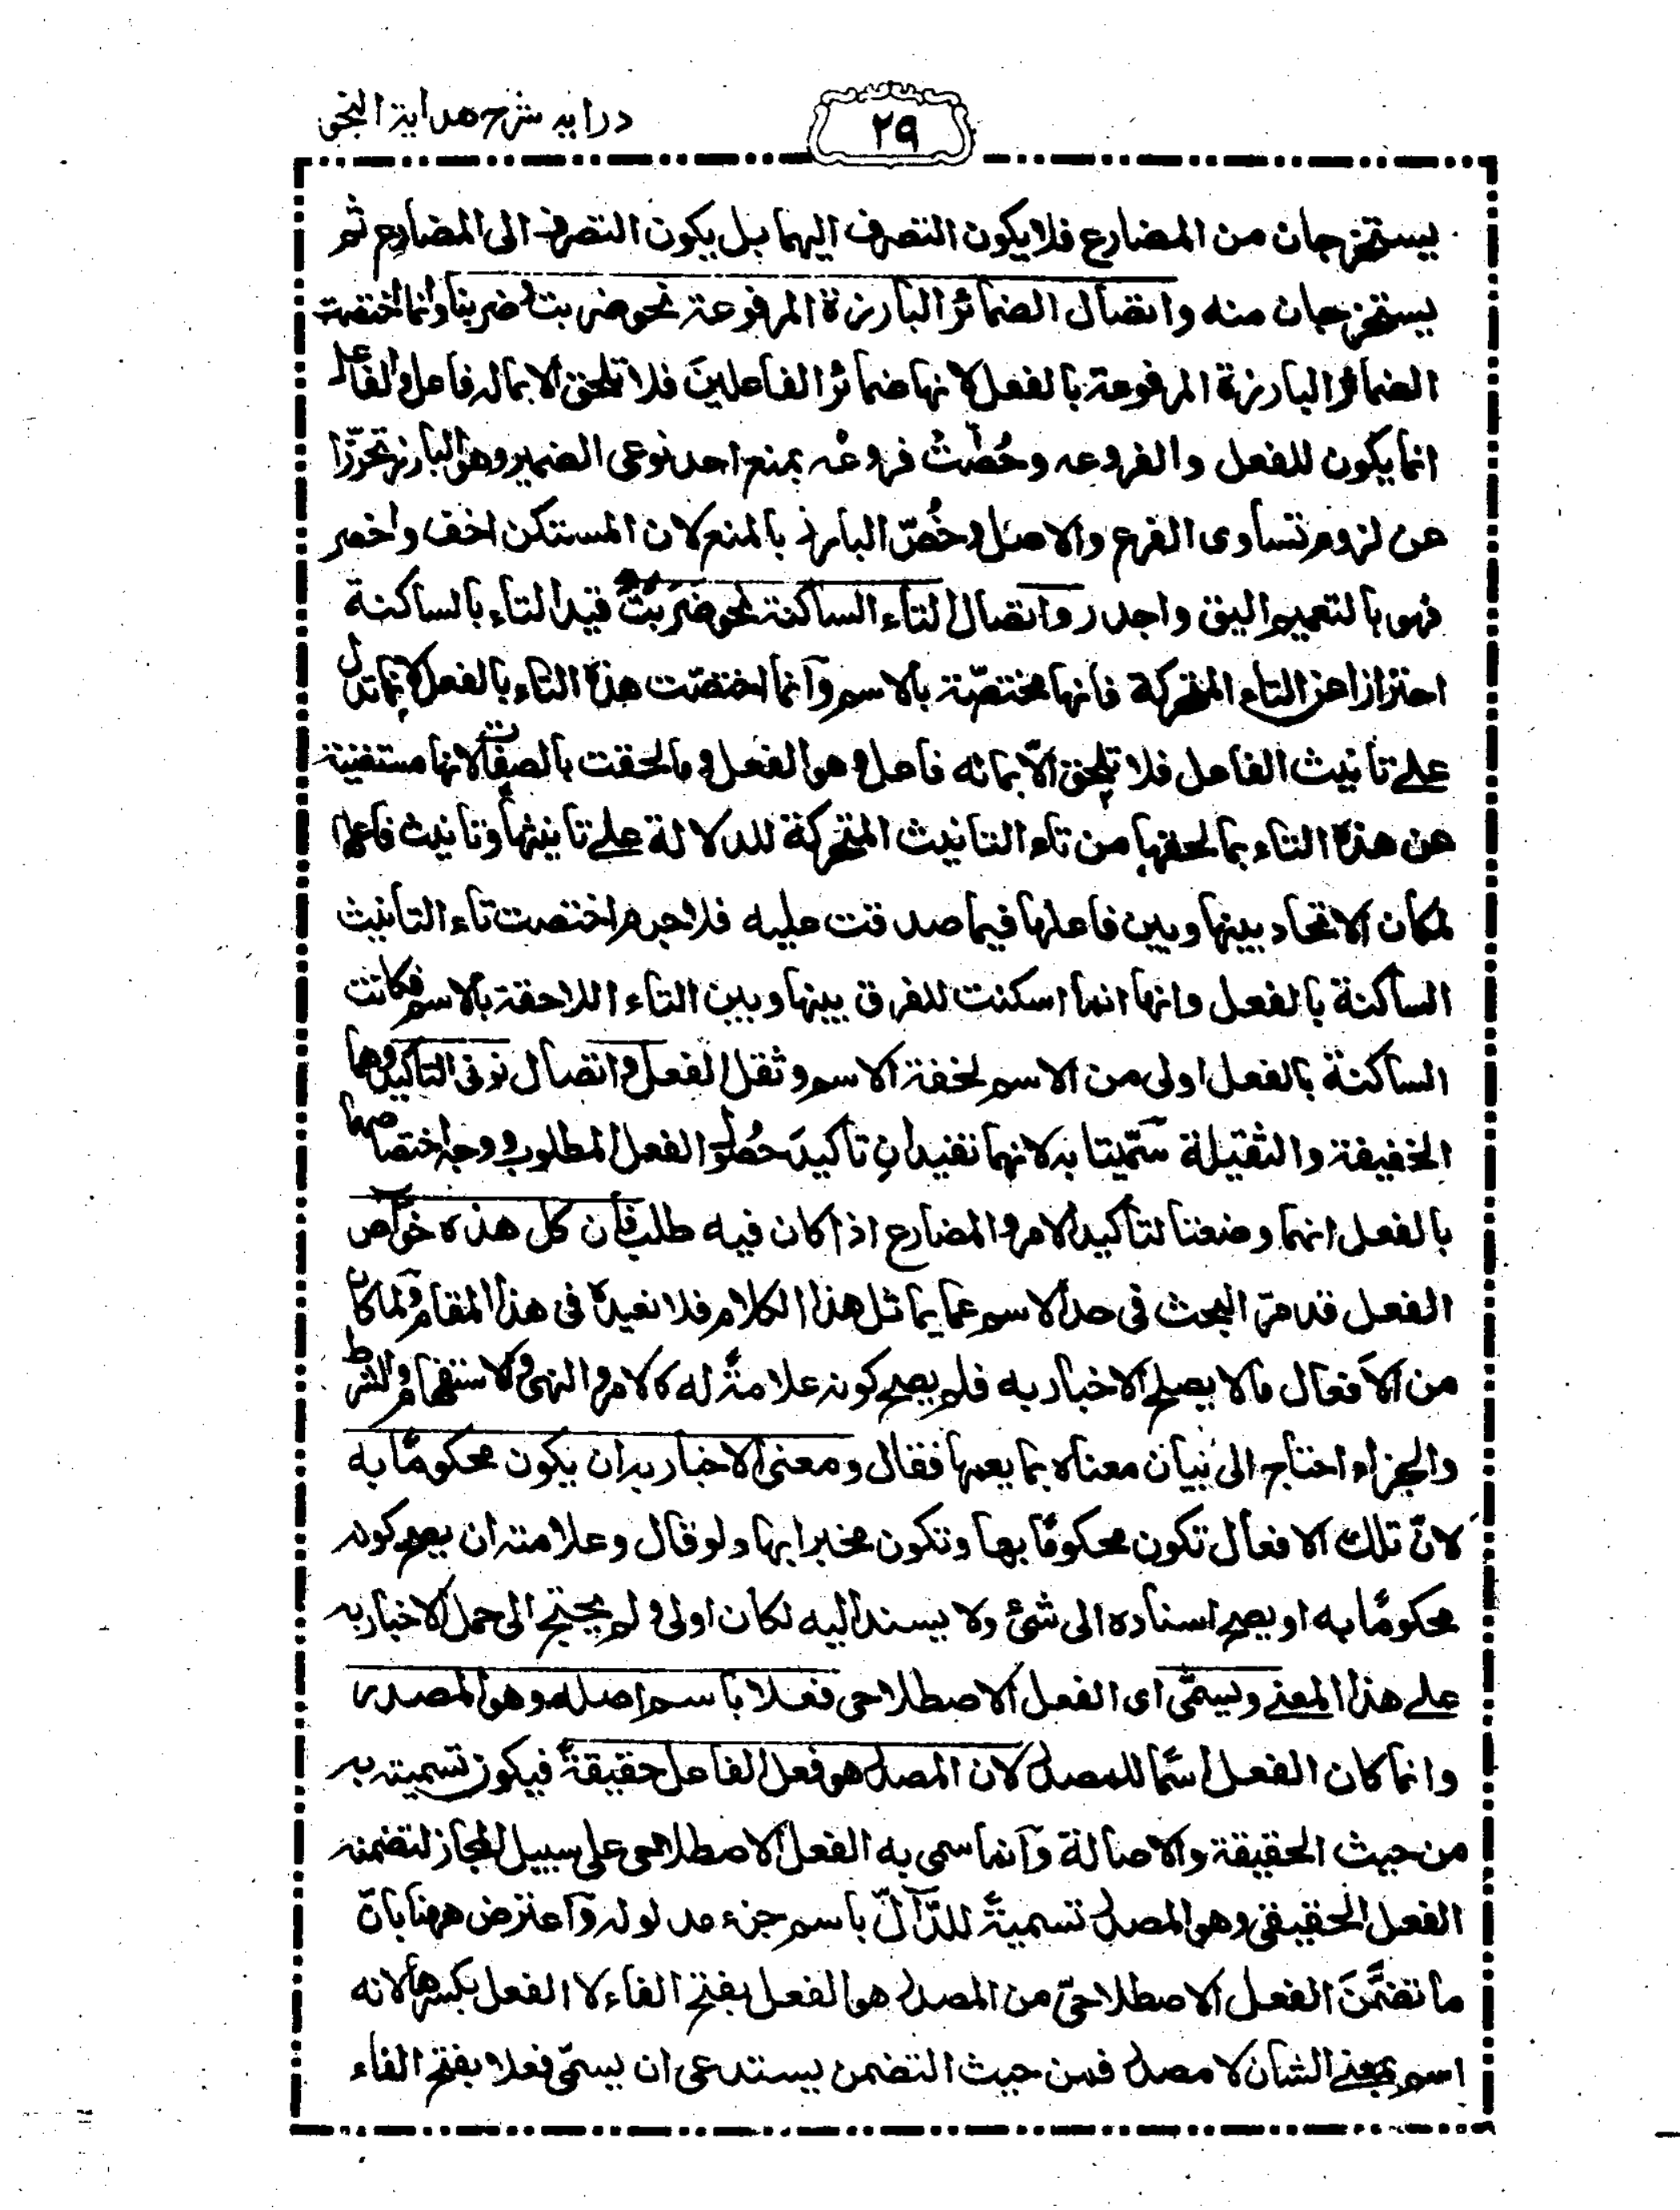 درايه شرح هداية النحو
٢٩
يستخرجان من المضارع فلا يكون التصرف اليهما بل يكون التصرف الى المضارع ثم
يستخرجان منه واتصال الضمائر البارزة المرفوعة نحو ضربت وضربنا وانما اختصت
الضمائر البارزة المرفوعة بالفعل لانها ضمائر الفاعلين فلا تلحق الا بماله فاعل والفاعل
انما يكون للفعل والفروعه وحُطّتْ فروعُه بمنع احد نوعى الضمير وهو البارز تحرّزا
عن لزوم تساوى الفرع والاصل وخُصّ البارز بالمنع لان المستكن اخف واخصر
فهو بالتعميم اليق واجدر واتصال التاء الساكنة نحو ضَرَبَتْ قيد التاء بالساكنة
احترازا عن التاء المتحركة فانها مختصّة بالاسم وآنما اختصّت هذه التاء بالفعل لانها تدل
على تانيث الفاعل فلا تلحق الّا بماله فاعل وهو الفعل وما لحقت بالصفات لانها مستغنية
عن هذه التاء بما لحقها من تاء التانيث المتحركة للدلالة على تانيثها وتانيث فاعلها
لمكان الاتحاد بينها وبين فاعلها فيما صدقت عليه فلا جرم اختصت تاء التانيث
الساكنة بالفعل وانها انما اسكنت للفرق بينها وبين التاء اللاحقة بالاسم فكانت
الساكنة بالفعل اولى من الاسم لخفة الاسم وثقل الفعل واتصال نونى التاكيد وهما
الخفيفة والثقيلة سمّيتا به لانهما تفيدان تاكيدَ حُصُولِ الفعل المطلوب ووجه اختصاصهما
بالفعل انهما وضعتا لتاكيد الامر والمضارع اذا كان فيه طلب فان كل هذه خواص
الفعل قد مرّ البحث فى حد الاسم عما يماثل هذا الكلام فلا نعيده فى هذا المقام ولما كان
من الافعال مالا يصلح الاخبار به فلم يصح كونه علامةً له كالامر والنهى والاستفهام والشرط
والجزاء احتاج الى بيان معناه بما يعمها فقال ومعنى الاخبار به ان يكون محكومًا به
لانّ تلك الافعال تكون محكومًا بها وتكون مخبرا بها ولو قال وعلامته ان يصح كونه
محكومًا به او يصح اسناده الى شئ ولا يسند اليه لكان اولى ولم يحتج الى حمل الاخبار به
على هذا المعنى ويسمّى اى الفعل الاصطلاحى فعلا باسم اصله وهو المصدر
وانما كان الفعل اسمًا للمصدر لان المصدر هو فعل الفاعل حقيقةً فيكون تسميته به
من حيث الحقيقة والاصالة وآنما سمى به الفعل الاصطلاحى على سبيل المجاز لتضمنه
الفعل الحقيقى وهو المصدر تسميةً للدّالّ باسم جزء مدلوله وآعترض ههنا بانّ
ما تضمَّنَ الفعل الاصطلاحىّ من المصدر هو الفعل بفتح الفاء لا الفعل بكسرها لانه
اسم بمعنى الشان لا مصدر فمن حيث التضمن يستدعى ان يسمّى فعلا بفتح الفاء